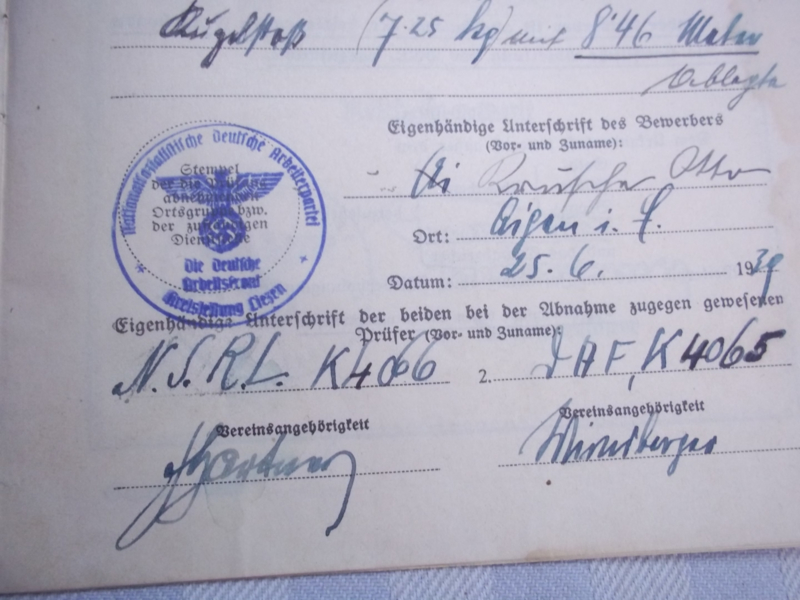 Kugelstoß (7.25 kg) mit 8'46 Meter
ablegte
Eigenhändige Unterschrift des Bewerbers
(Vor- und Zuname):
Otto
Nationalsozialistische Deutsche Arbeiterpartei
Stempel
der die Prüfung
abnehmenden
Ortsgruppe bzw.
der zuständigen
Dienststelle
Die Deutsche
Arbeitsfront
Kreisleitung Liezen
Ort: Aigen i. E.
Datum: 25. 6. 1939
Eigenhändige Unterschrift der beiden bei der Abnahme zugegen gewesenen
Prüfer (Vor- und Zuname):
N.S.R.L. K4066 2. DAF, K4065
Vereinsangehörigkeit Vereinsangehörigkeit
Wirnsberger